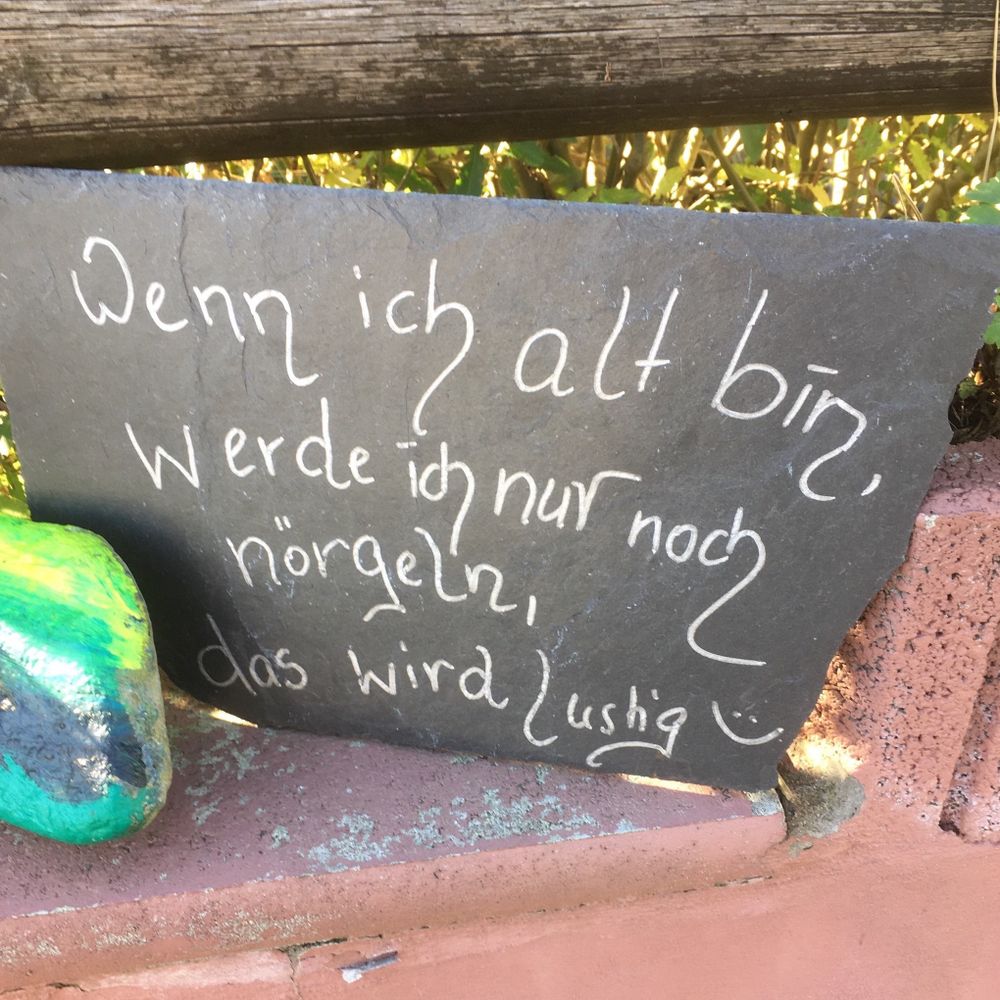 Wenn ich alt bin,
werde ich nur noch
nörgeln,
das wird lustig :)